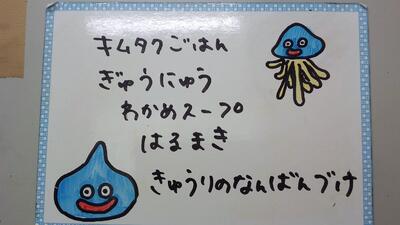 キムタクごはん
ぎゅうにゅう
わかめスープ
はるまき
きゅうりのなんばんづけ